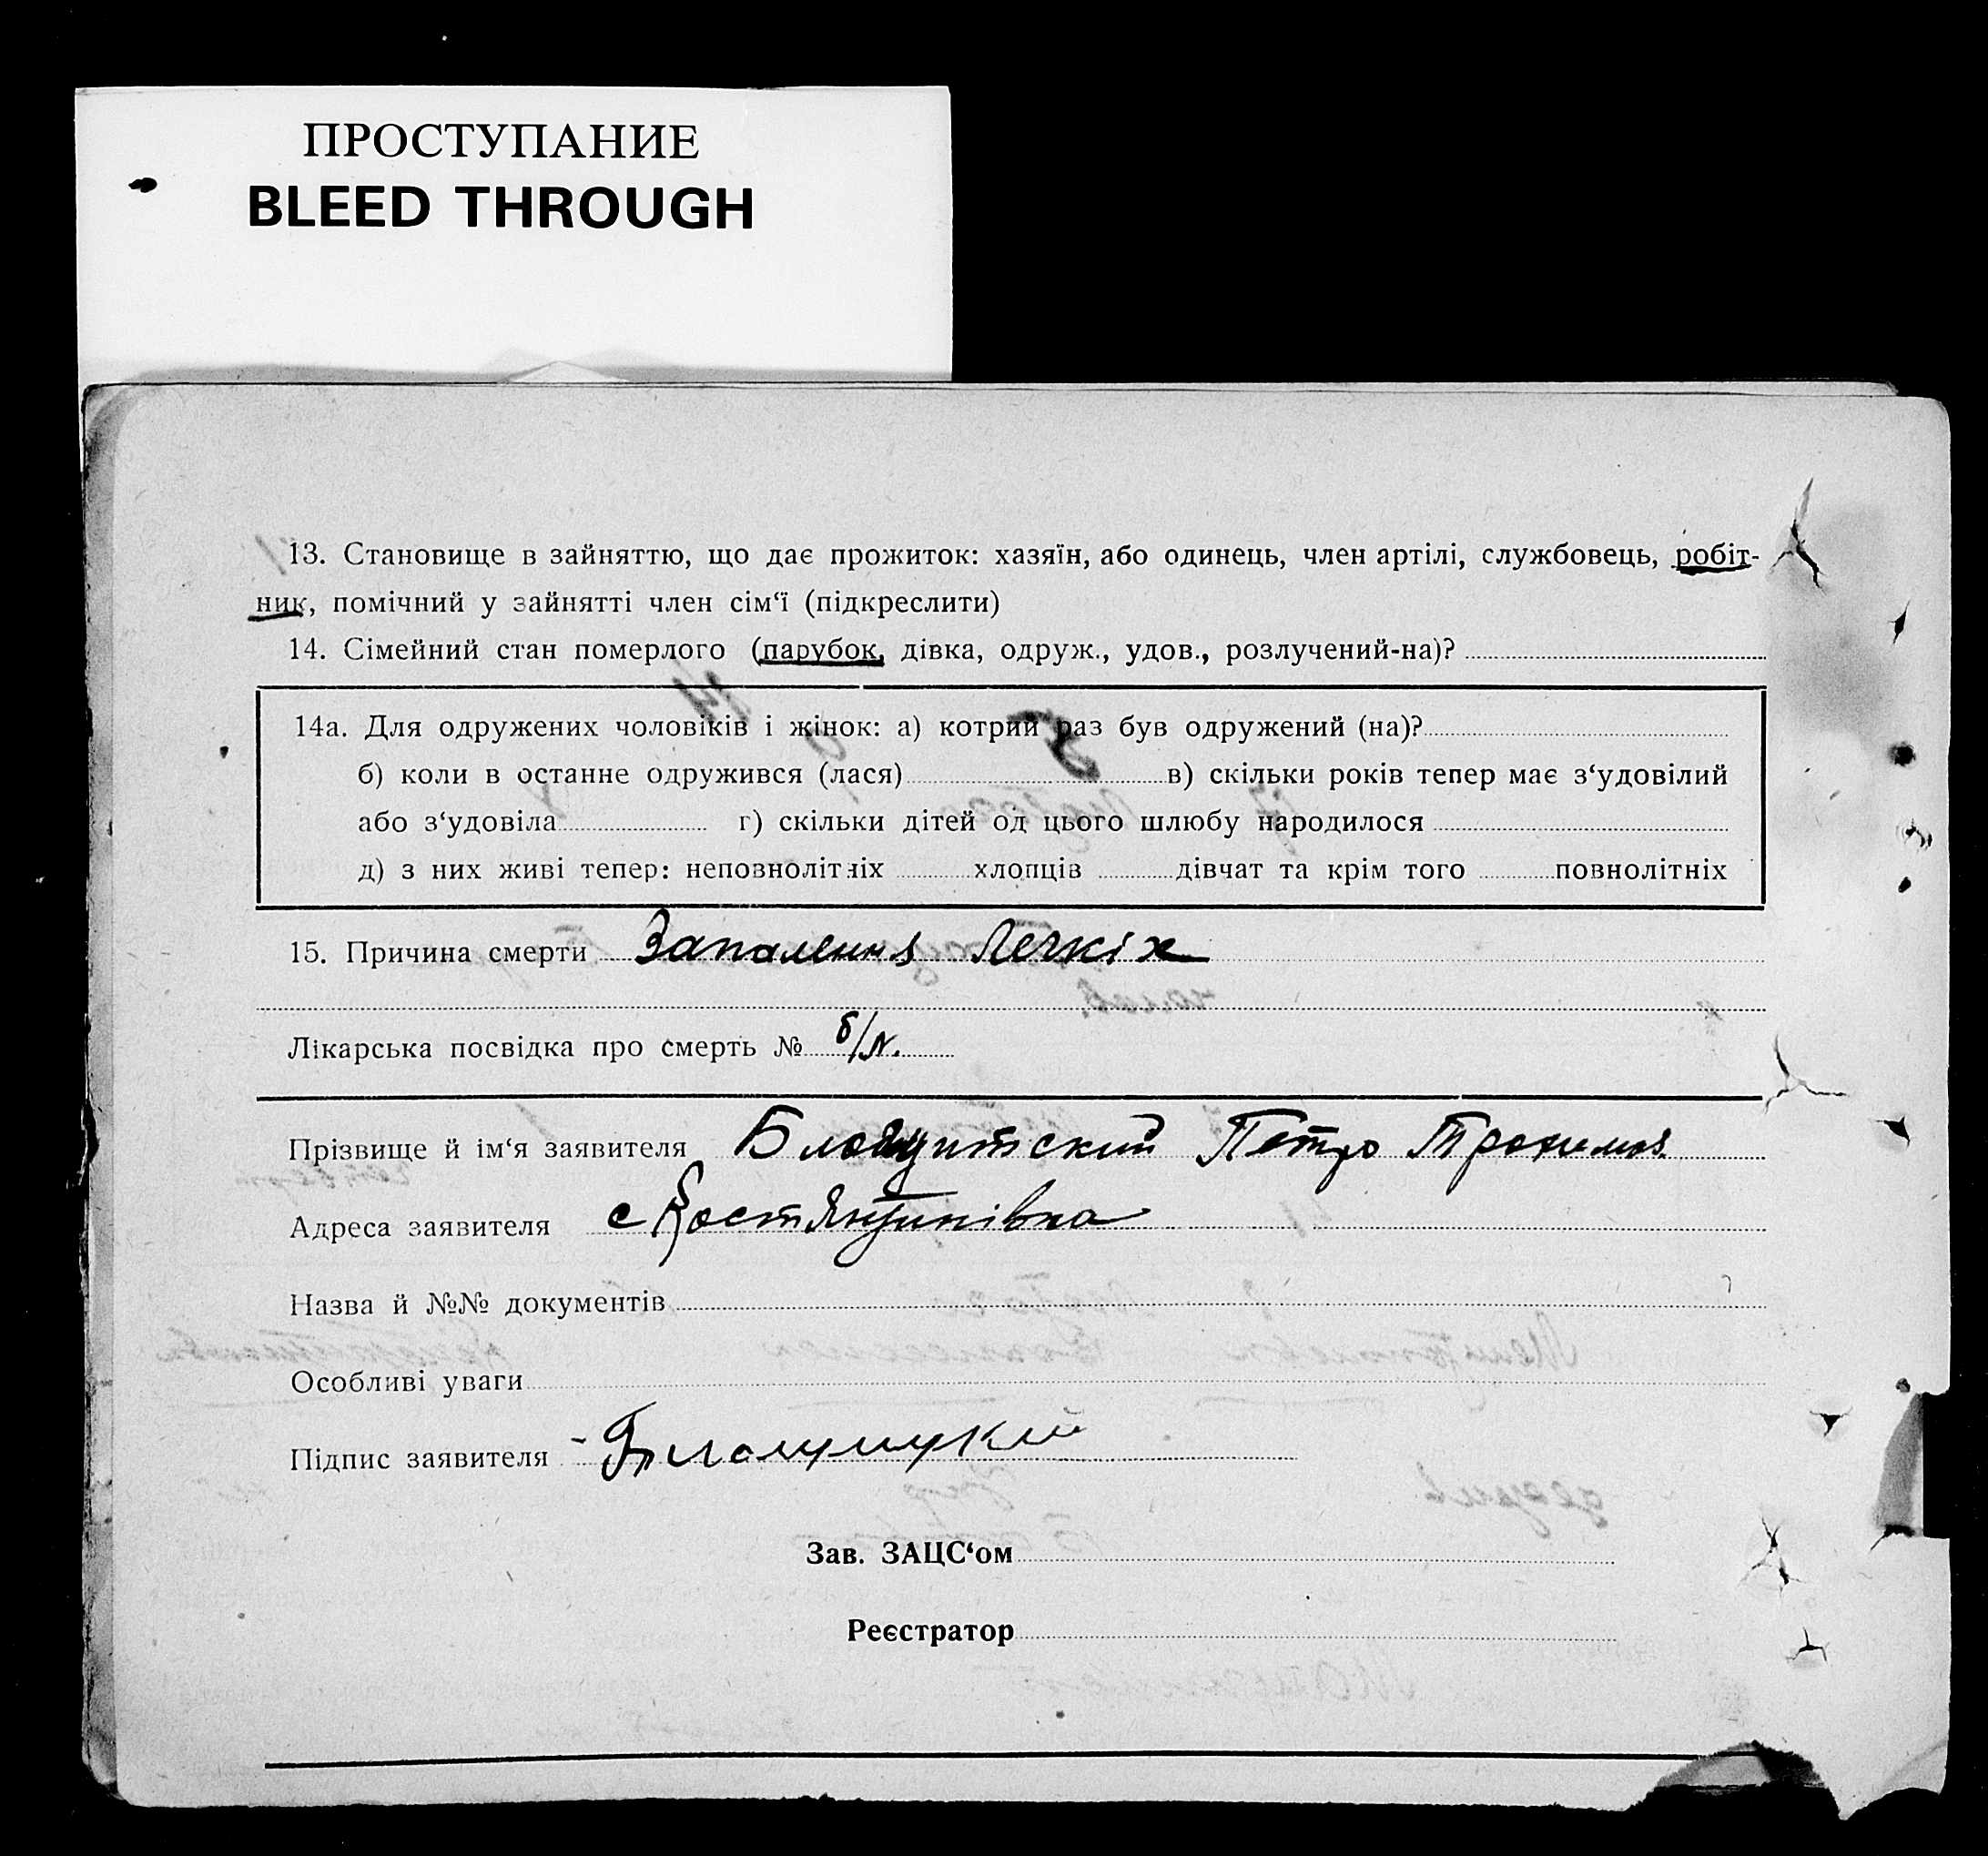 ПРОСТУПАНИЕ
BLEED THROUGH
13. Становище в зайняттю, що дає прожиток: хазяїн, або одинець, член артілі, службовець, робіт-
ник, помічний у зайнятті член сім‘ї (підкреслити)
14. Сімейний стан померлого (парубок, дівка, одруж., удов., розлучений-на)?
14а. Для одружених чоловіків і жінок: а) котрий раз був одружений (на)?
б) коли в останне одружився (лася) в) скільки років тепер має з‘удовілий
або з‘удовіла г) скільки дітей од цього шлюбу народилося
д) з них живі тепер: неповнолітніх хлопців дівчат та крім того повнолітніх
15. Причина смерти Запалення Легкіх
Лікарська посвідка про смерть № б/N.
Прізвище й ім‘я заявителя Петро
Адреса заявителя с Костянтинівка
Назва й №№ документів
Особливі уваги
Підпис заявителя
Зав. ЗАЦС‘ом
Реєстратор